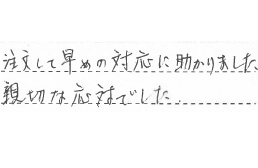 注文して早めの対応に助かりました。
親切な応対でした。